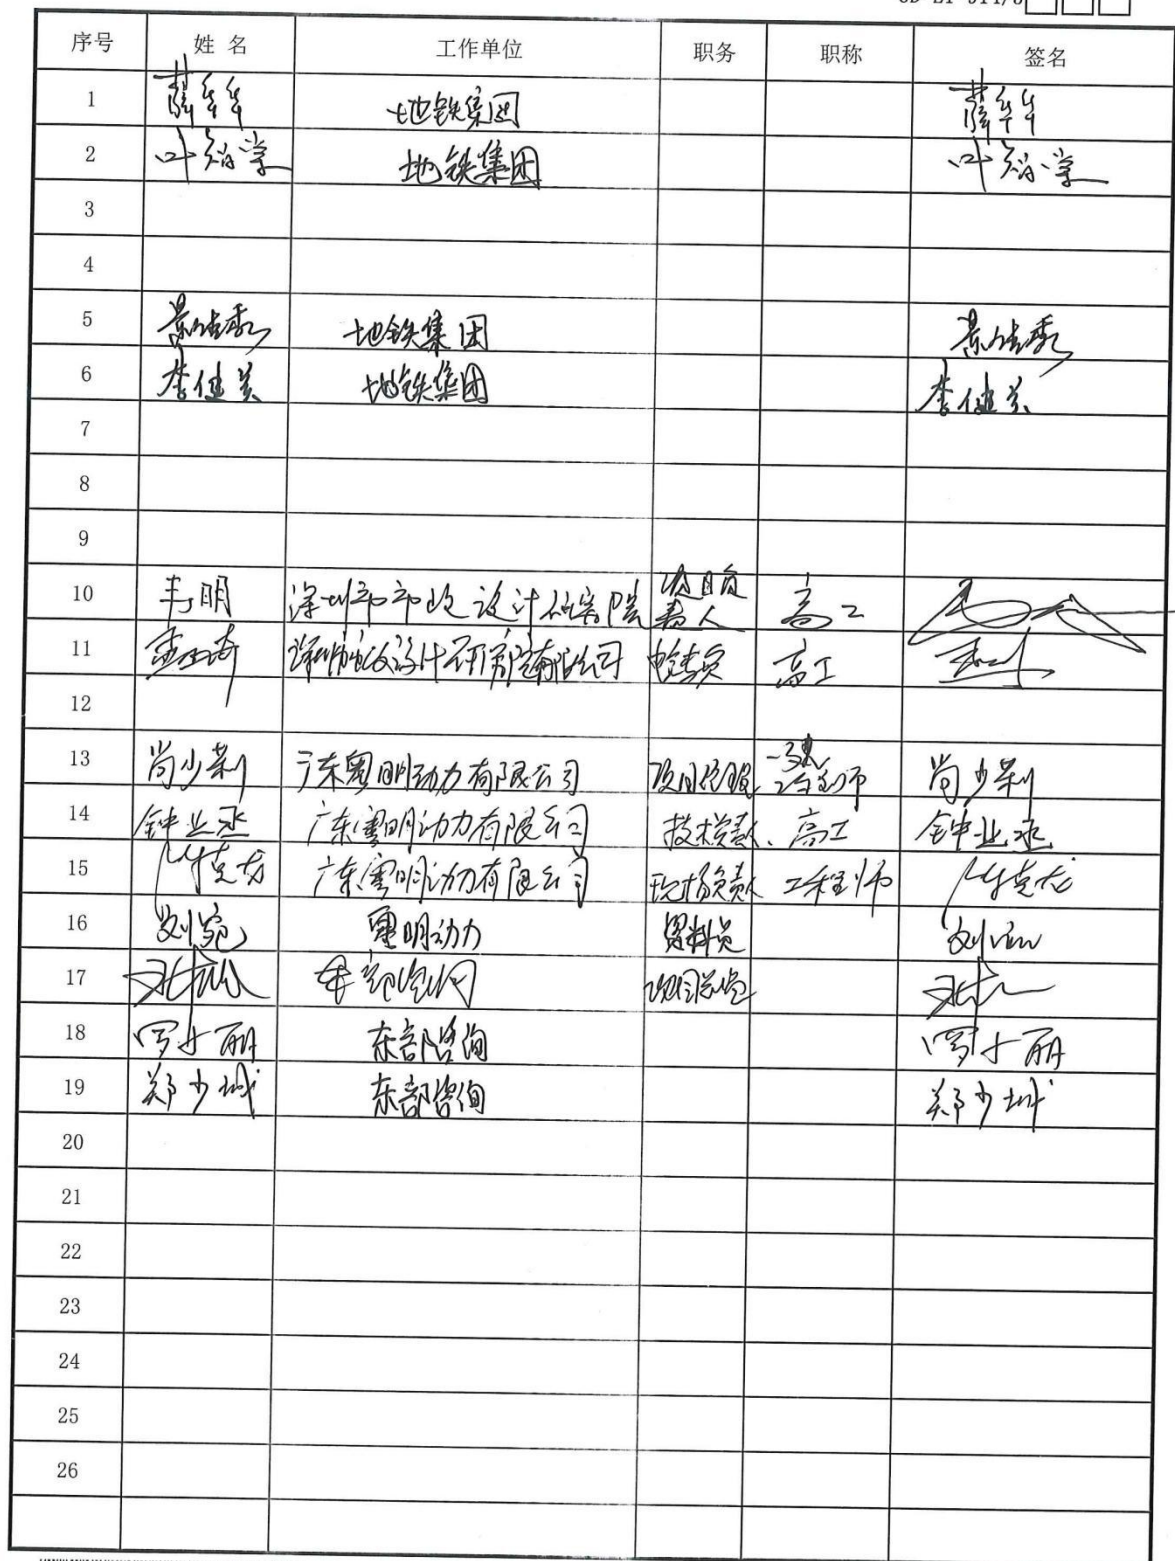 序号 姓名 工作单位 职务 职称 签名
1 薛华华 地铁集团 薛华华
2 叶裕学 地铁集团 叶裕学
3
4
5 地铁集团
6 李健美 地铁集团 李健美
7
8
9
10 韦明 深圳市市政设计研究院 项目负责人 高工
11 深圳市市政设计研究院有限公司 高工
12
13 尚少荣 广东粤明动力有限公司 项目经理 工程师 尚少荣
14 钟业丞 广东粤明动力有限公司 技术负责人 高工 钟业丞
15 广东粤明动力有限公司 现场负责人 工程师
16 刘宛 粤明动力 资料员 刘宛
17 东部咨询 项目总监
18 罗小丽 东部咨询 罗小丽
19 郑少城 东部咨询 郑少城
20
21
22
23
24
25
26